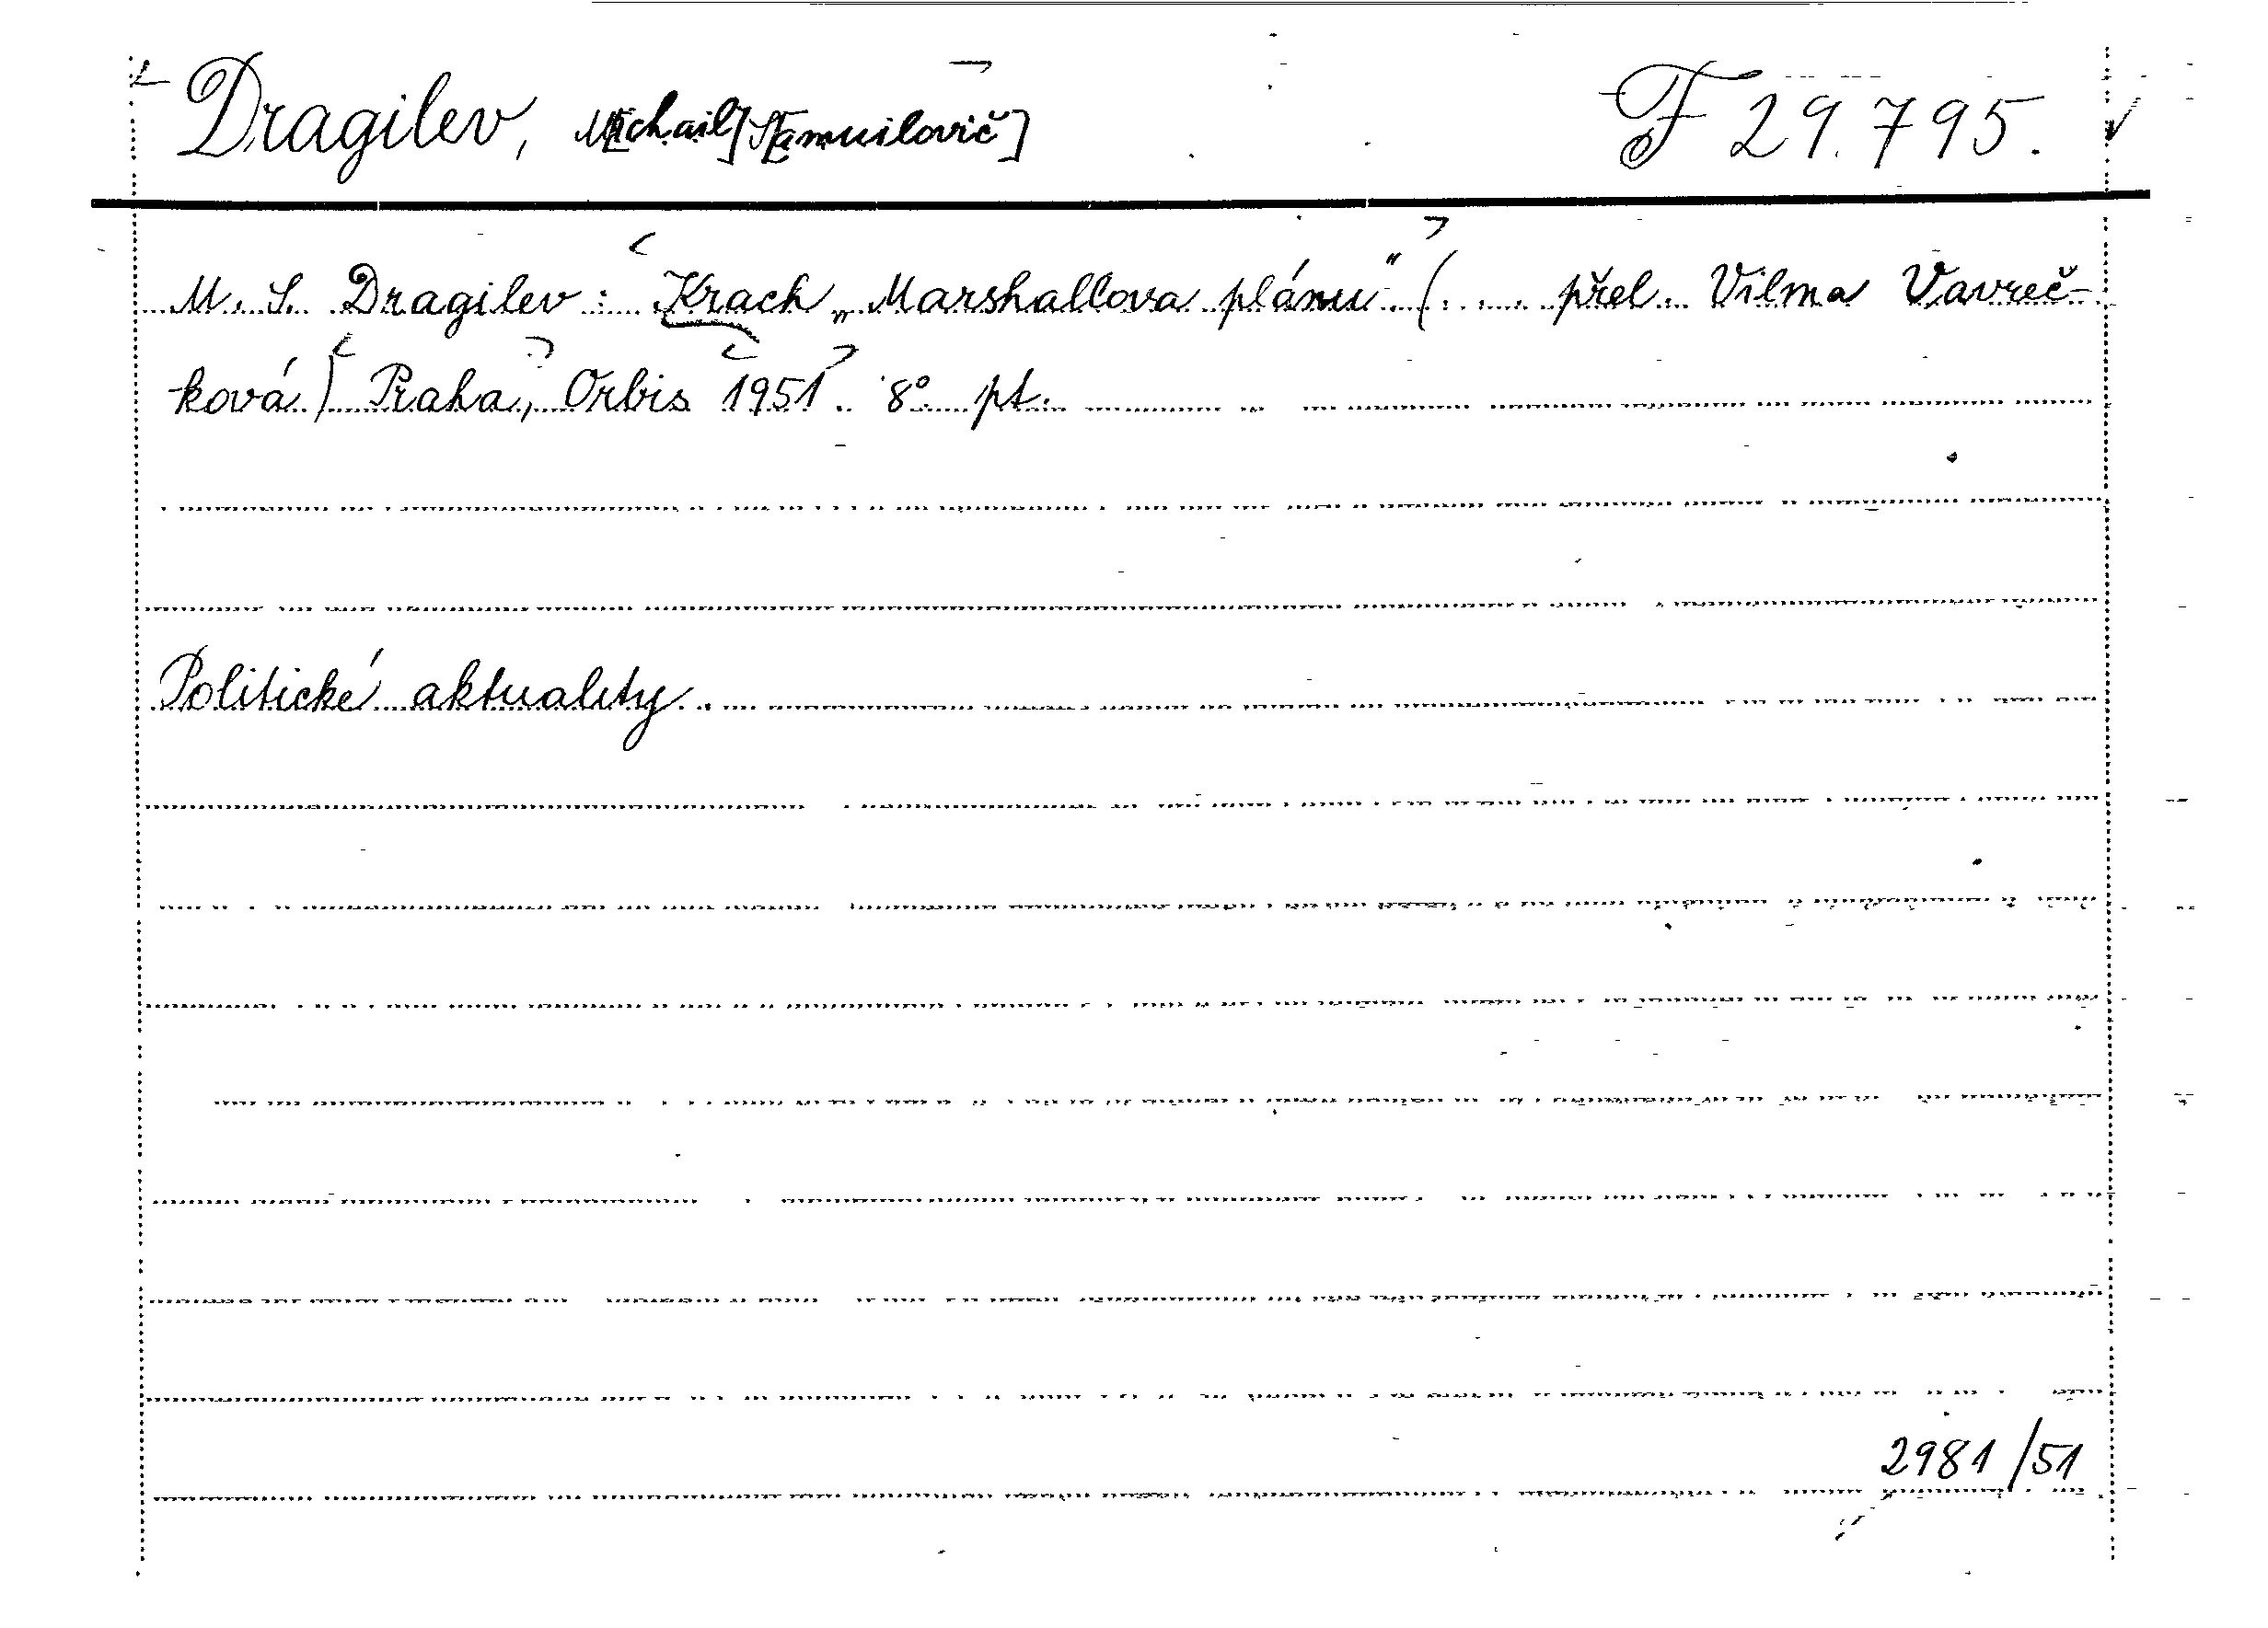 Dragilev, M[ichail] S[amuilovič] F 29.795.
M. S. Dragilev: Krach „Marshallova plánu" (... přel. Vilma Vavreč-
ková) Praha, Orbis 1951. 8° pt.
Politické aktuality.
2981/51